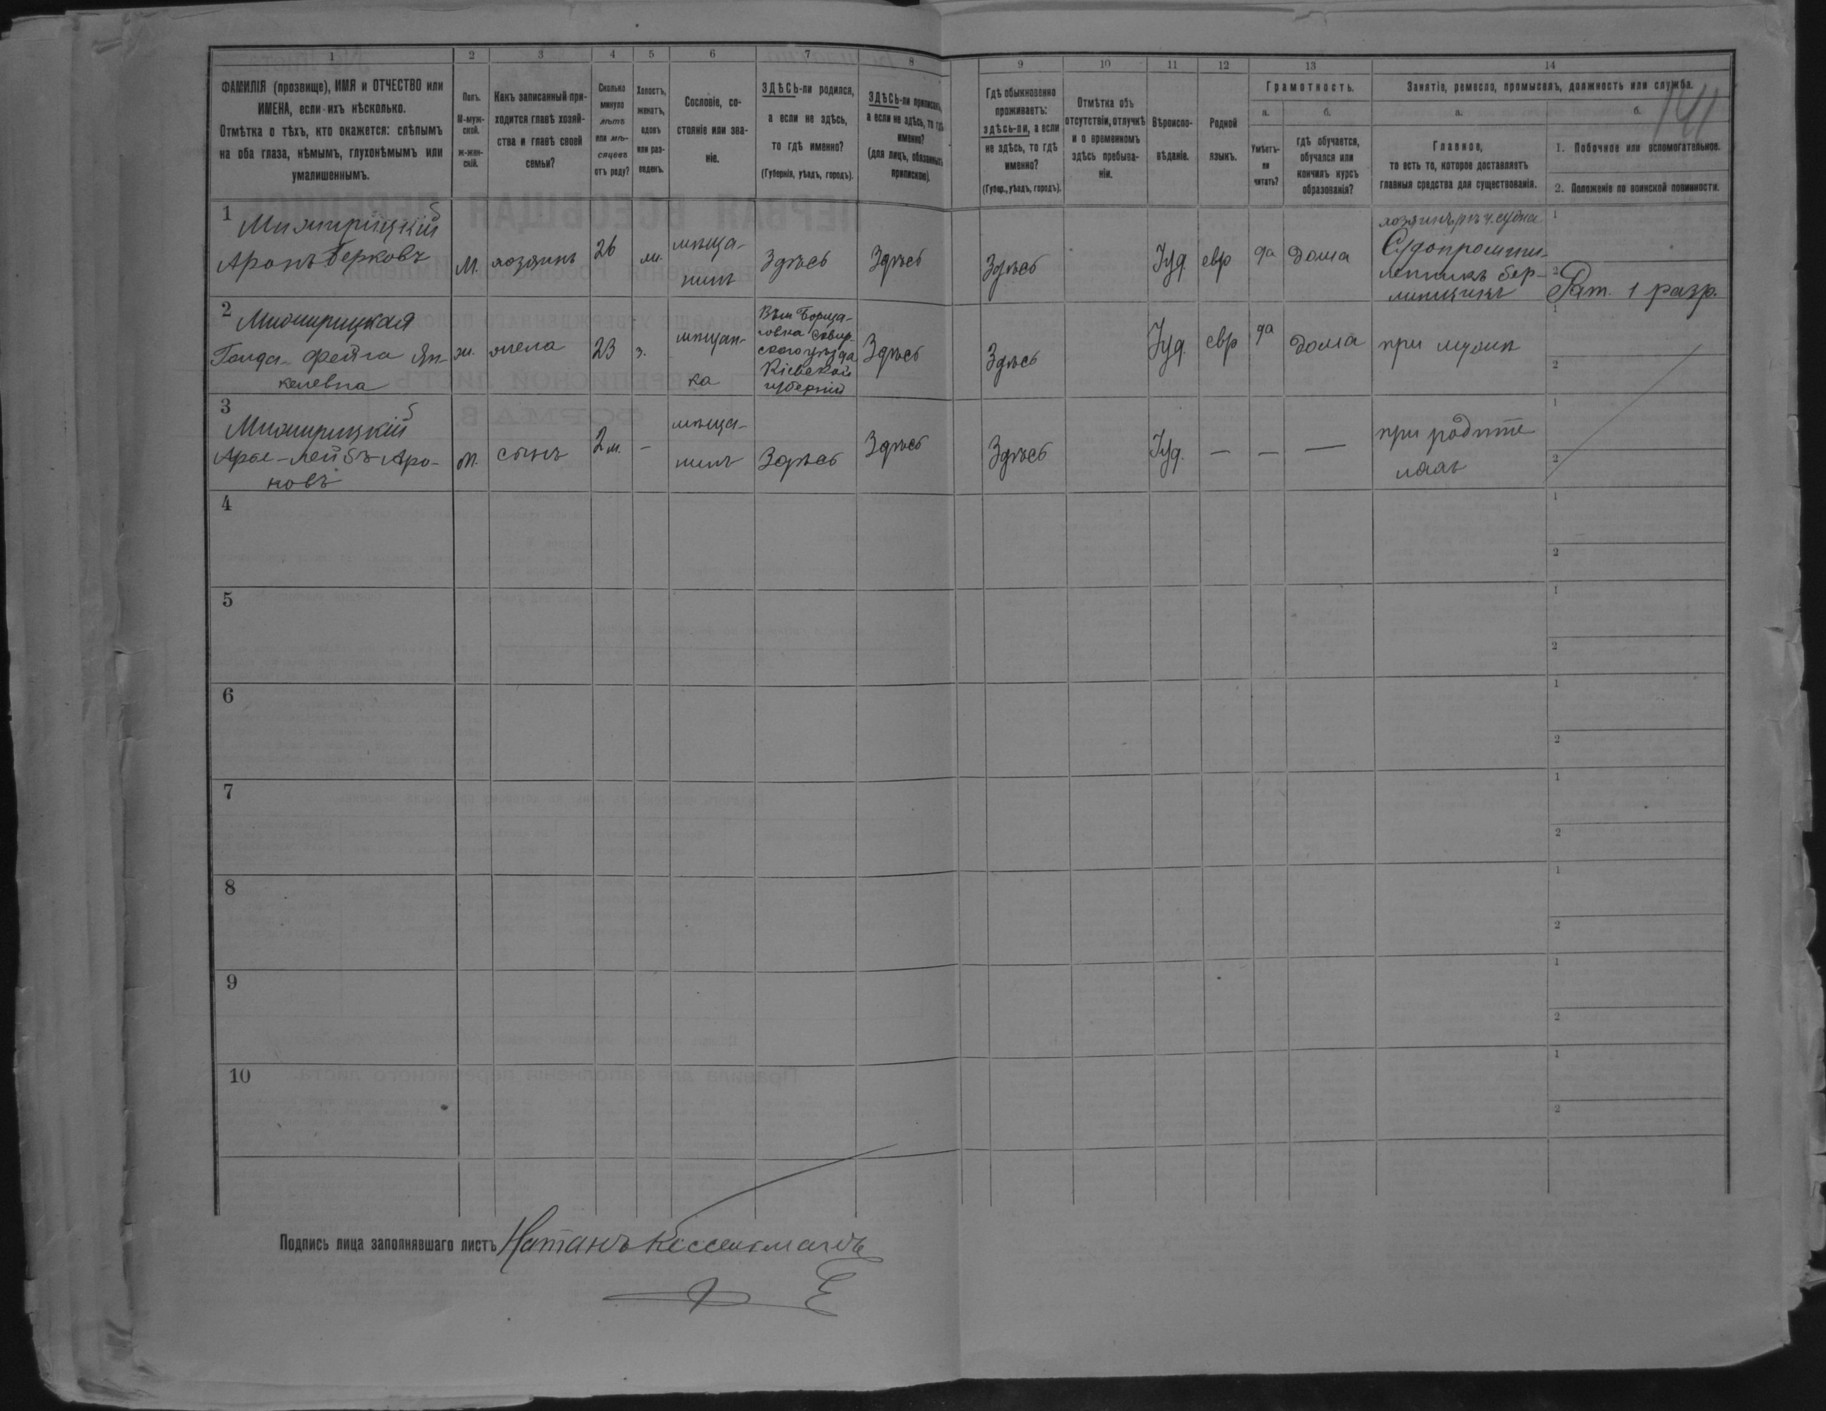 141
1 2 3 4 5 6 7 8 9 10 11 12 13 14
ФАМИЛІЯ (прозвище), ИМЯ и ОТЧЕСТВО или
ИМЕНА, если ихъ нѣсколько.
Отмѣтка о тѣхъ, кто окажется: слѣпымъ
на оба глаза, нѣмымъ, глухонѣмымъ или
умалишеннымъ.
Полъ.
М-муж-
ской.
ж-жен-
скій.
Какъ записанный при-
ходится главѣ хозяй-
ства и главѣ своей
семьи?
Сколько
минуло
лѣтъ
или мѣ-
сяцевъ
отъ роду?
Холостъ,
женатъ,
вдовъ
или раз-
веденъ.
Сословіе, со-
стояніе или зва-
ніе.
ЗДѢСЬ-ли родился,
а если не здѣсь,
то гдѣ именно?
(Губернія, уѣздъ, городъ).
ЗДѢСЬ-ли приписанъ,
а если не здѣсь, то гдѣ
именно?
(для лицъ, обязанныхъ
припискою).
Гдѣ обыкновенно
проживаетъ:
здѣсь-ли, а если
не здѣсь, то гдѣ
именно?
(Губер., уѣздъ, городъ).
Отмѣтка объ
отсутствіи, отлучкѣ
и о временномъ
здѣсь пребыва-
ніи.
Вѣроиспо-
вѣданіе.
Родной
языкъ.
Грамотность.
а.
Умѣетъ-
ли
читать?
б.
гдѣ обучается,
обучался или
кончилъ курсъ
образованія?
Занятіе, ремесло, промыселъ, должность или служба.
а.
Главное,
то есть то, которое доставляетъ
главныя средства для существованія.
б.
1. Побочное или вспомогательное.
2. Положеніе по воинской повинности.
1
Аронъ Берковъ
М.
хозяинъ
26
мѣща-
нинъ
Здѣсь
Здѣсь
Здѣсь
Іуд
евр
да
дома
1
2
Рат. 1 разр.
2
Голда-Фейга Ян-
келевна
ж.
жена
23
з.
мѣщан-
ка
Кіевской
губерніи
Здѣсь
Здѣсь
Іуд.
евр
да
дома
при мужѣ
1
2
3
Арье-Лейбъ Аро-
новъ
М.
сынъ
2 м.
—
мѣща-
нинъ
Здѣсь
Здѣсь
Здѣсь
Іуд.
—
—
—
при родите
ляхъ
1
2
4
1
2
5
1
2
6
1
2
7
1
2
8
1
2
9
1
2
10
1
2
Подпись лица заполнявшаго листъ Натанъ